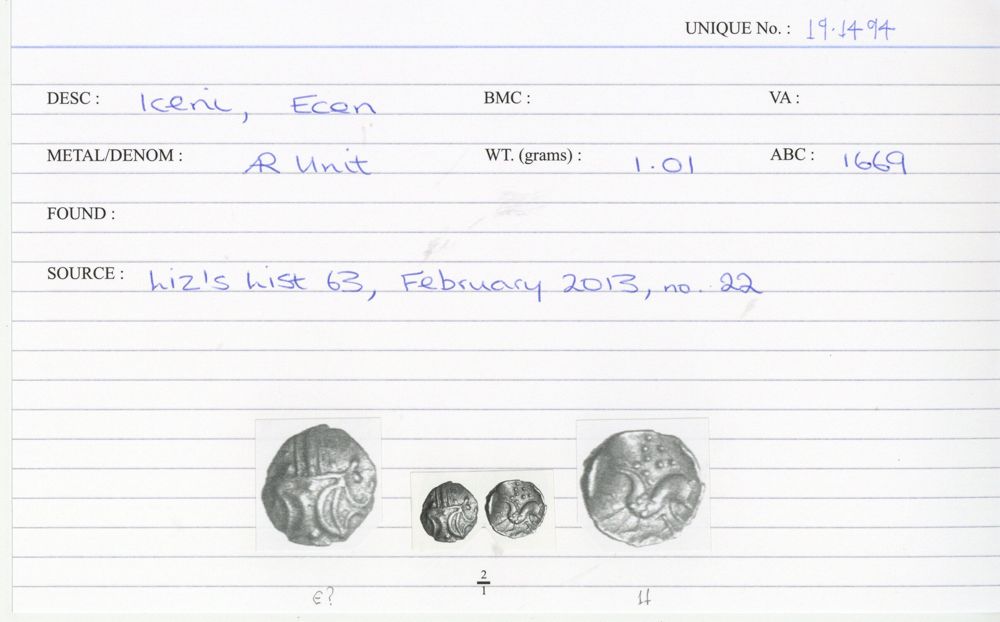 UNIQUE No. : 19.1494
DESC : Iceni, Ecen BMC : VA :
METAL/DENOM : AR Unit WT. (grams) : 1.01 ABC : 1669
FOUND :
SOURCE : Liz's List 63, February 2013, no. 22
2
1
e? H